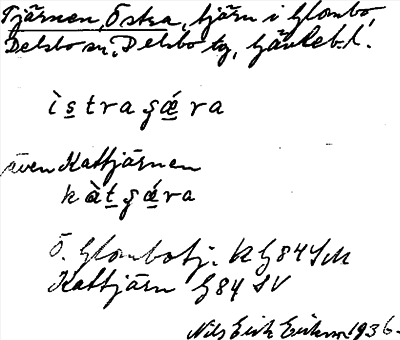 Tjärnen, Östra, tjärn i Glombo,
Delsbo sn, Delsbo tg, Gävleb. l.
ìstragǽra
även Kattjärnen
kàtgǽra
Ö. Glombotj. K G84SM
Kattjärn G84 SV
Nils Eric Erikson 1936.